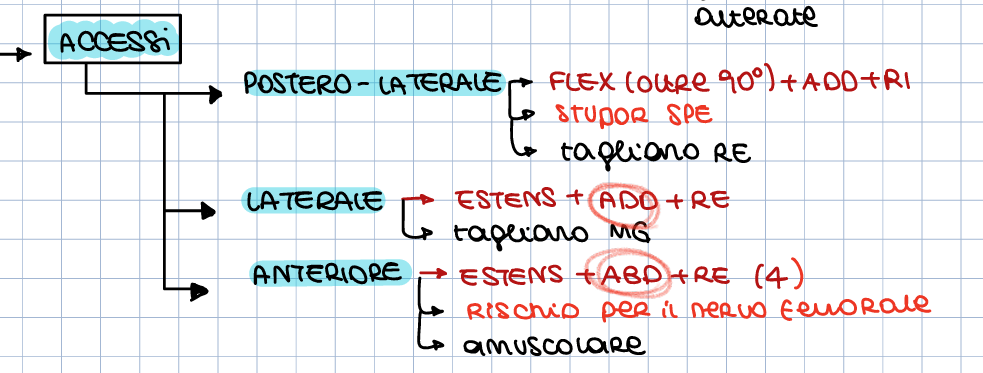 alterate
ACCESSi
POSTERO-LATERALE
FLEX (oltre 90°) + ADD + RI
STUPOR SPE
tagliano RE
LATERALE
ESTENS + ADD + RE
tagliano MG
ANTERIORE
ESTENS + ABD + RE (4)
RISCHIO per il nervo femorale
amuscolare